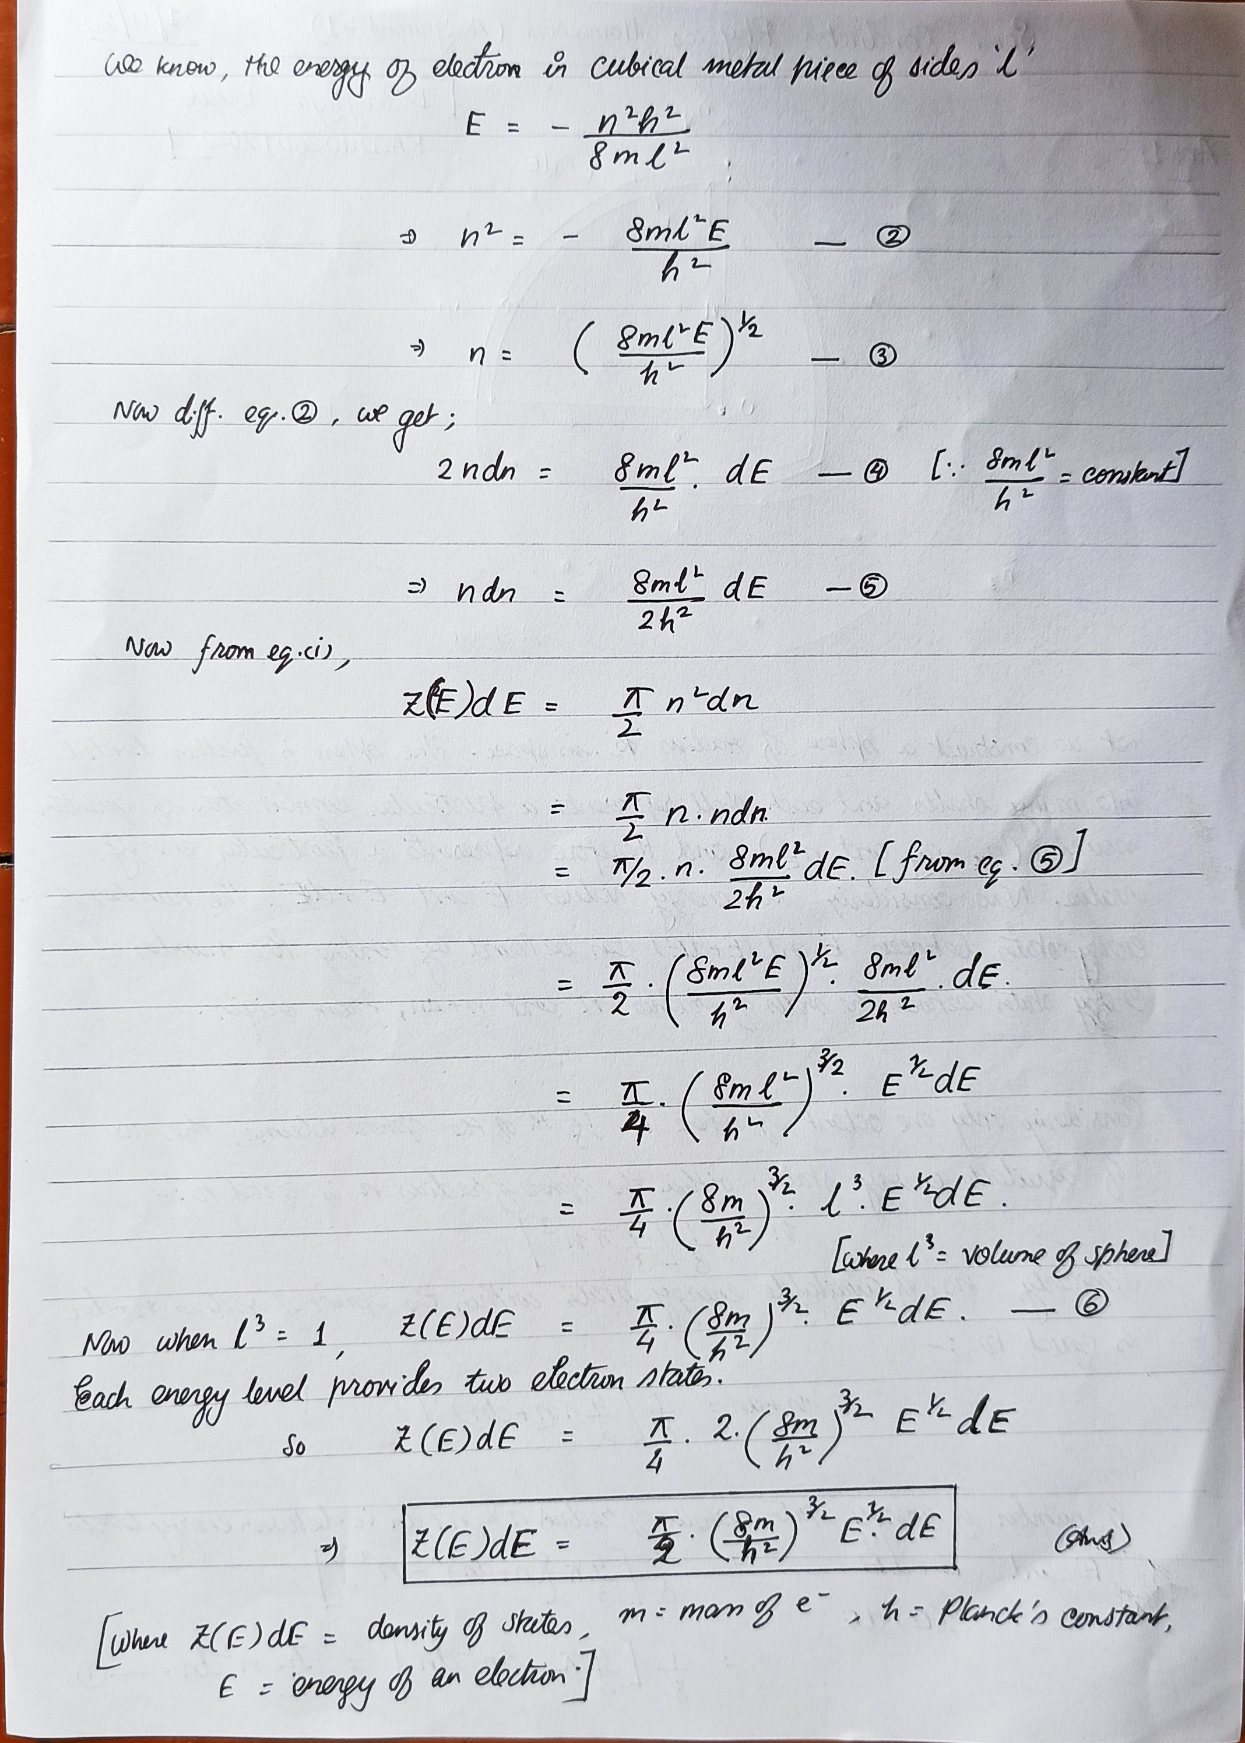 We know, the energy of electron in cubical metal piece of sides 'l'
E = - n²h² / 8ml²
⇒ n² = - 8ml²E / h² — ②
⇒ n = (8ml²E / h²)^1/2 — ③
Now diff. eq. ②, we get;
2ndn = 8ml² / h² . dE — ④ [∵ 8ml² / h² = constant]
⇒ ndn = 8ml² / 2h² dE — ⑤
Now from eq.(i),
Z(E)dE = π/2 n²dn
= π/2 n. ndn
= π/2 . n. 8ml² / 2h² dE. [from eq. ⑤]
= π/2 . (8ml²E / h²)^1/2 . 8ml² / 2h² . dE.
= π/4 . (8ml² / h²)^3/2 . E^1/2 dE
= π/4 . (8m / h²)^3/2 . l³. E^1/2 dE.
[where l³ = volume of sphere]
Now when l³ = 1, Z(E)dE = π/4 . (8m / h²)^3/2 . E^1/2 dE. — ⑥
Each energy level provides two electron states.
So Z(E)dE = π/4 . 2. (8m / h²)^3/2 E^1/2 dE
⇒ Z(E)dE = π/2 . (8m / h²)^3/2 E^1/2 . dE (Ans)
[where Z(E)dE = density of states, m = mass of e⁻, h = Planck's constant,
E = energy of an electron.]